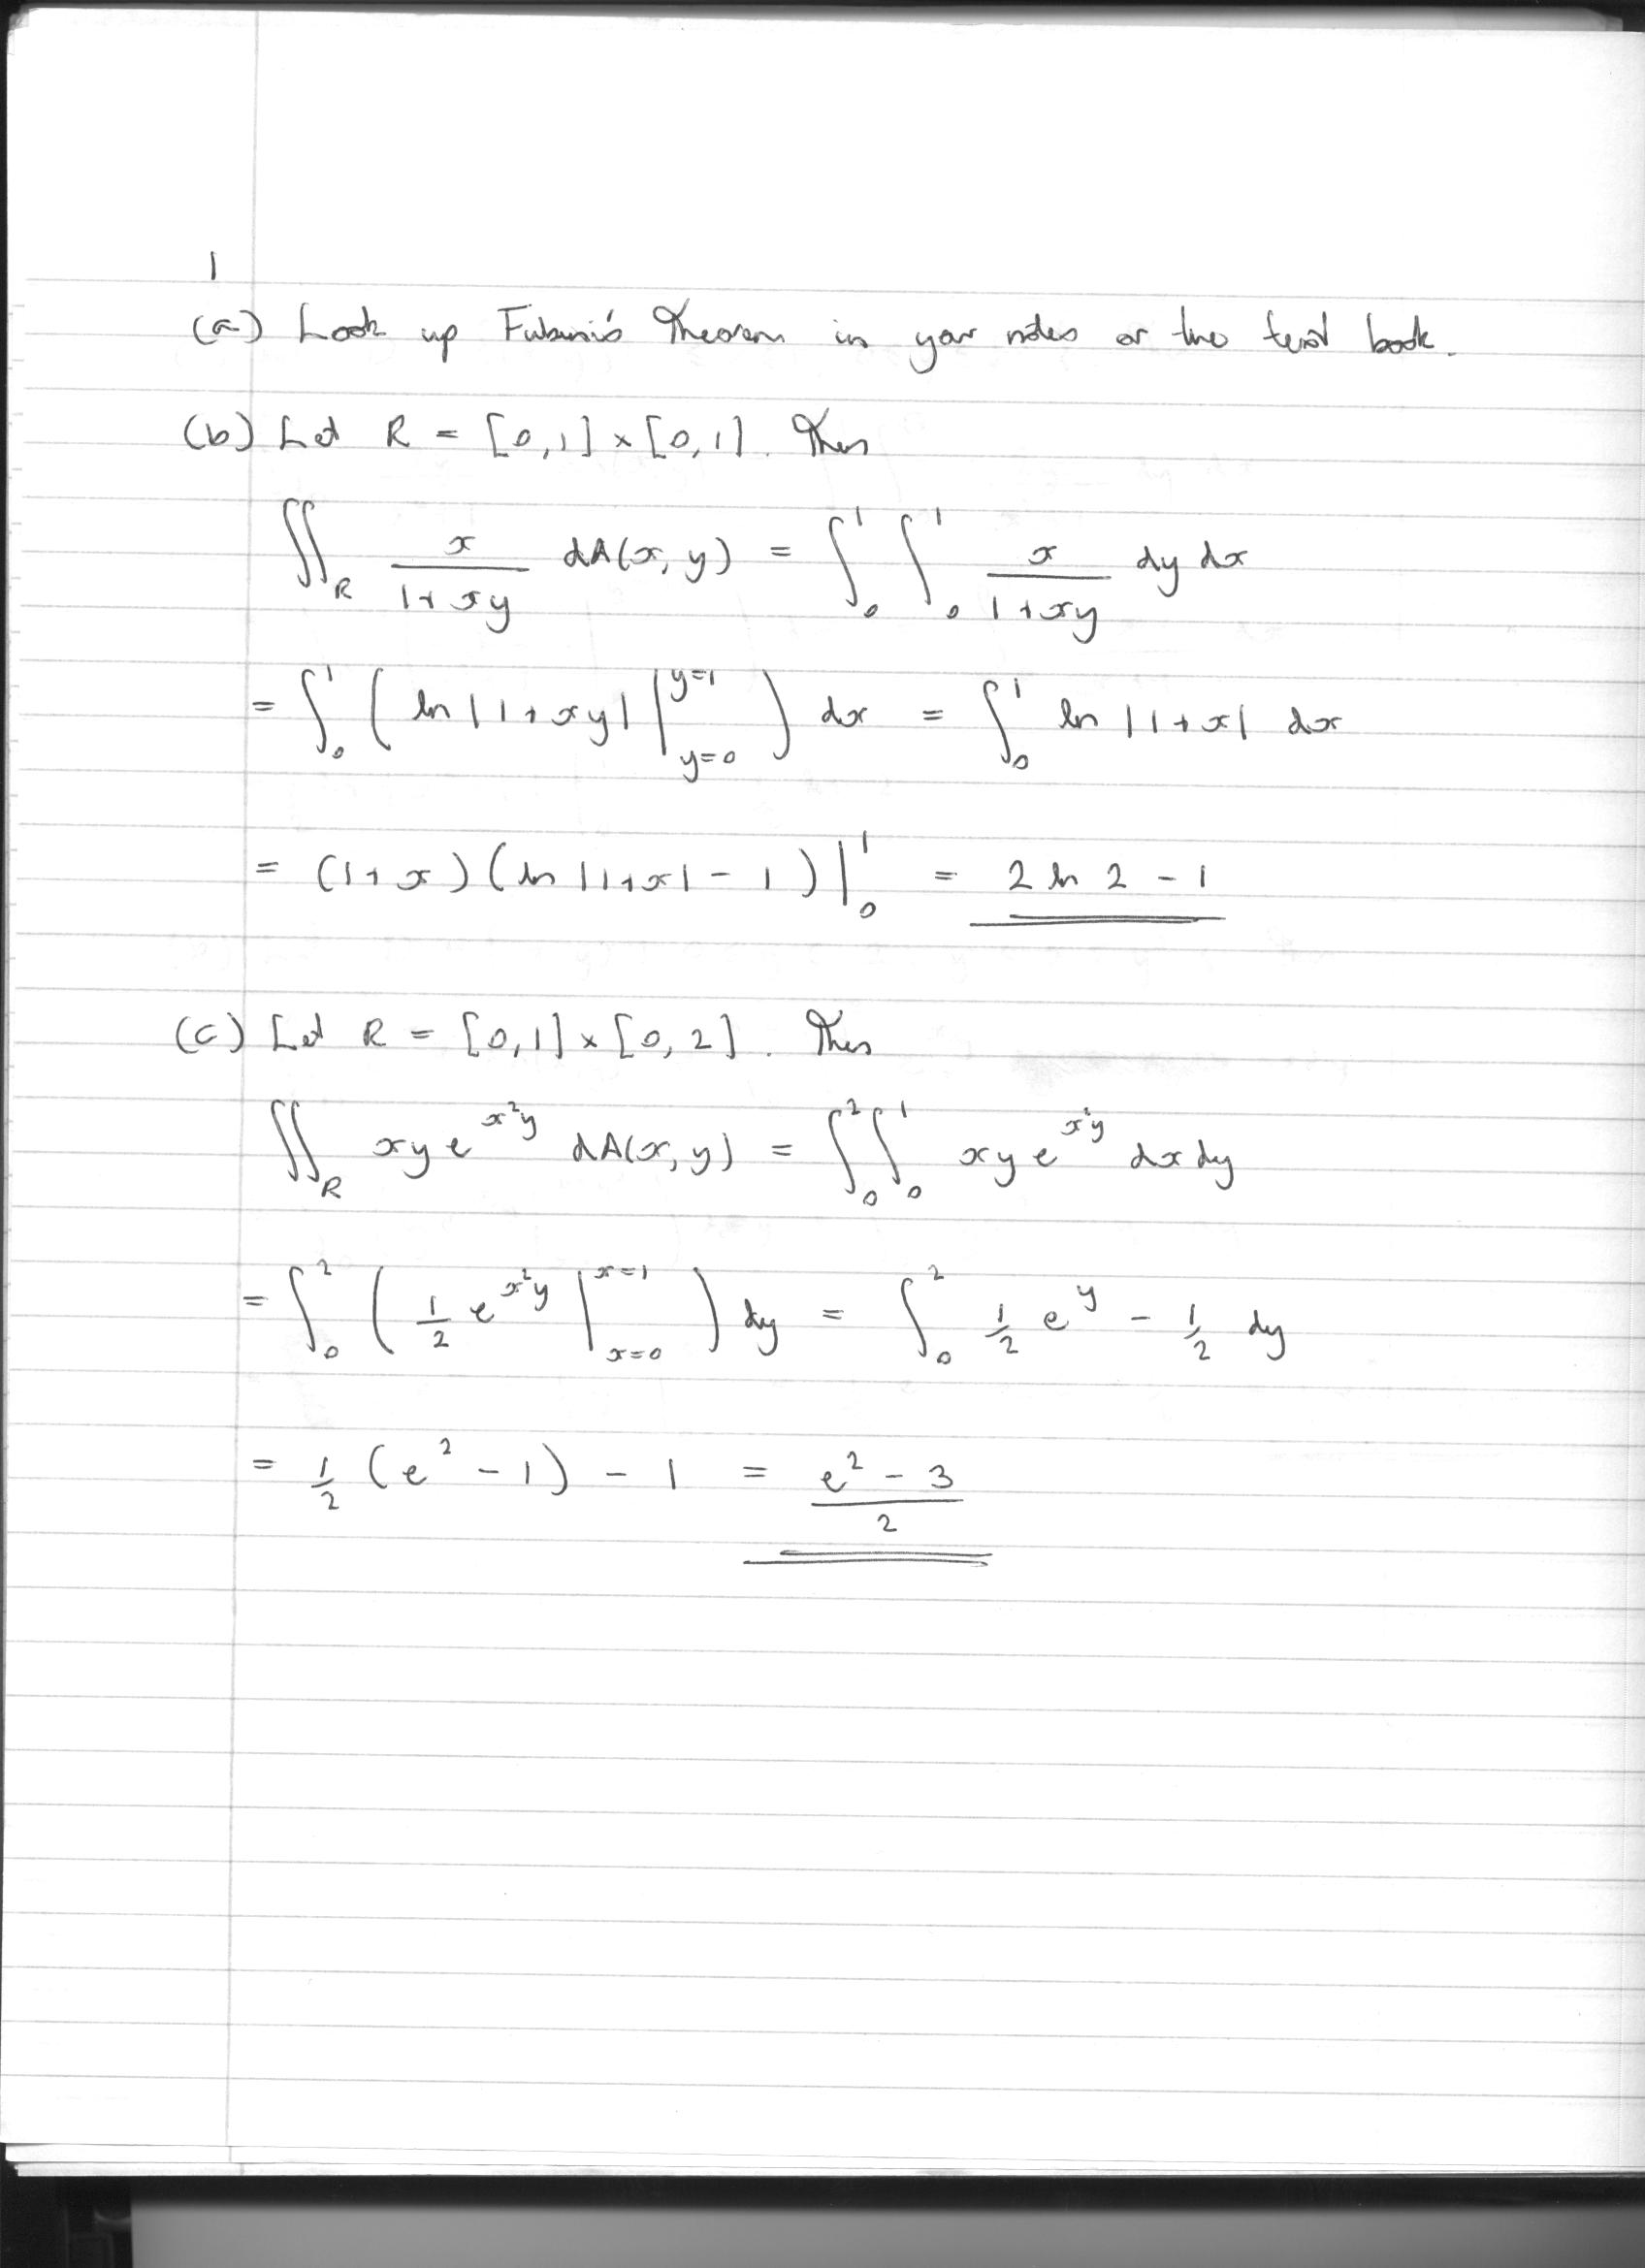 1
(a) Look up Fubini's Theorem in your notes or the text book.
(b) Let R = [0,1] × [0,1]. Then
∬_R x/(1+xy) dA(x,y) = ∫_0^1 ∫_0^1 x/(1+xy) dy dx
= ∫_0^1 ( ln|1+xy| |_{y=0}^{y=1} ) dx = ∫_0^1 ln|1+x| dx
= (1+x)(ln|1+x| - 1)|_0^1 = 2 ln 2 - 1
(c) Let R = [0,1] × [0,2]. Then
∬_R xy e^{x²y} dA(x,y) = ∫_0^2 ∫_0^1 xy e^{x²y} dx dy
= ∫_0^2 ( 1/2 e^{x²y} |_{x=0}^{x=1} ) dy = ∫_0^2 1/2 e^y - 1/2 dy
= 1/2 (e² - 1) - 1 = (e² - 3)/2